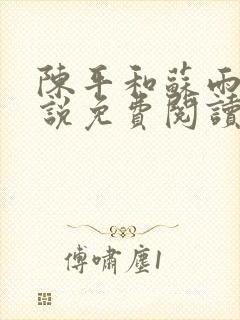 陳平和蘇雨
說免費閱讀
傅嘯塵1